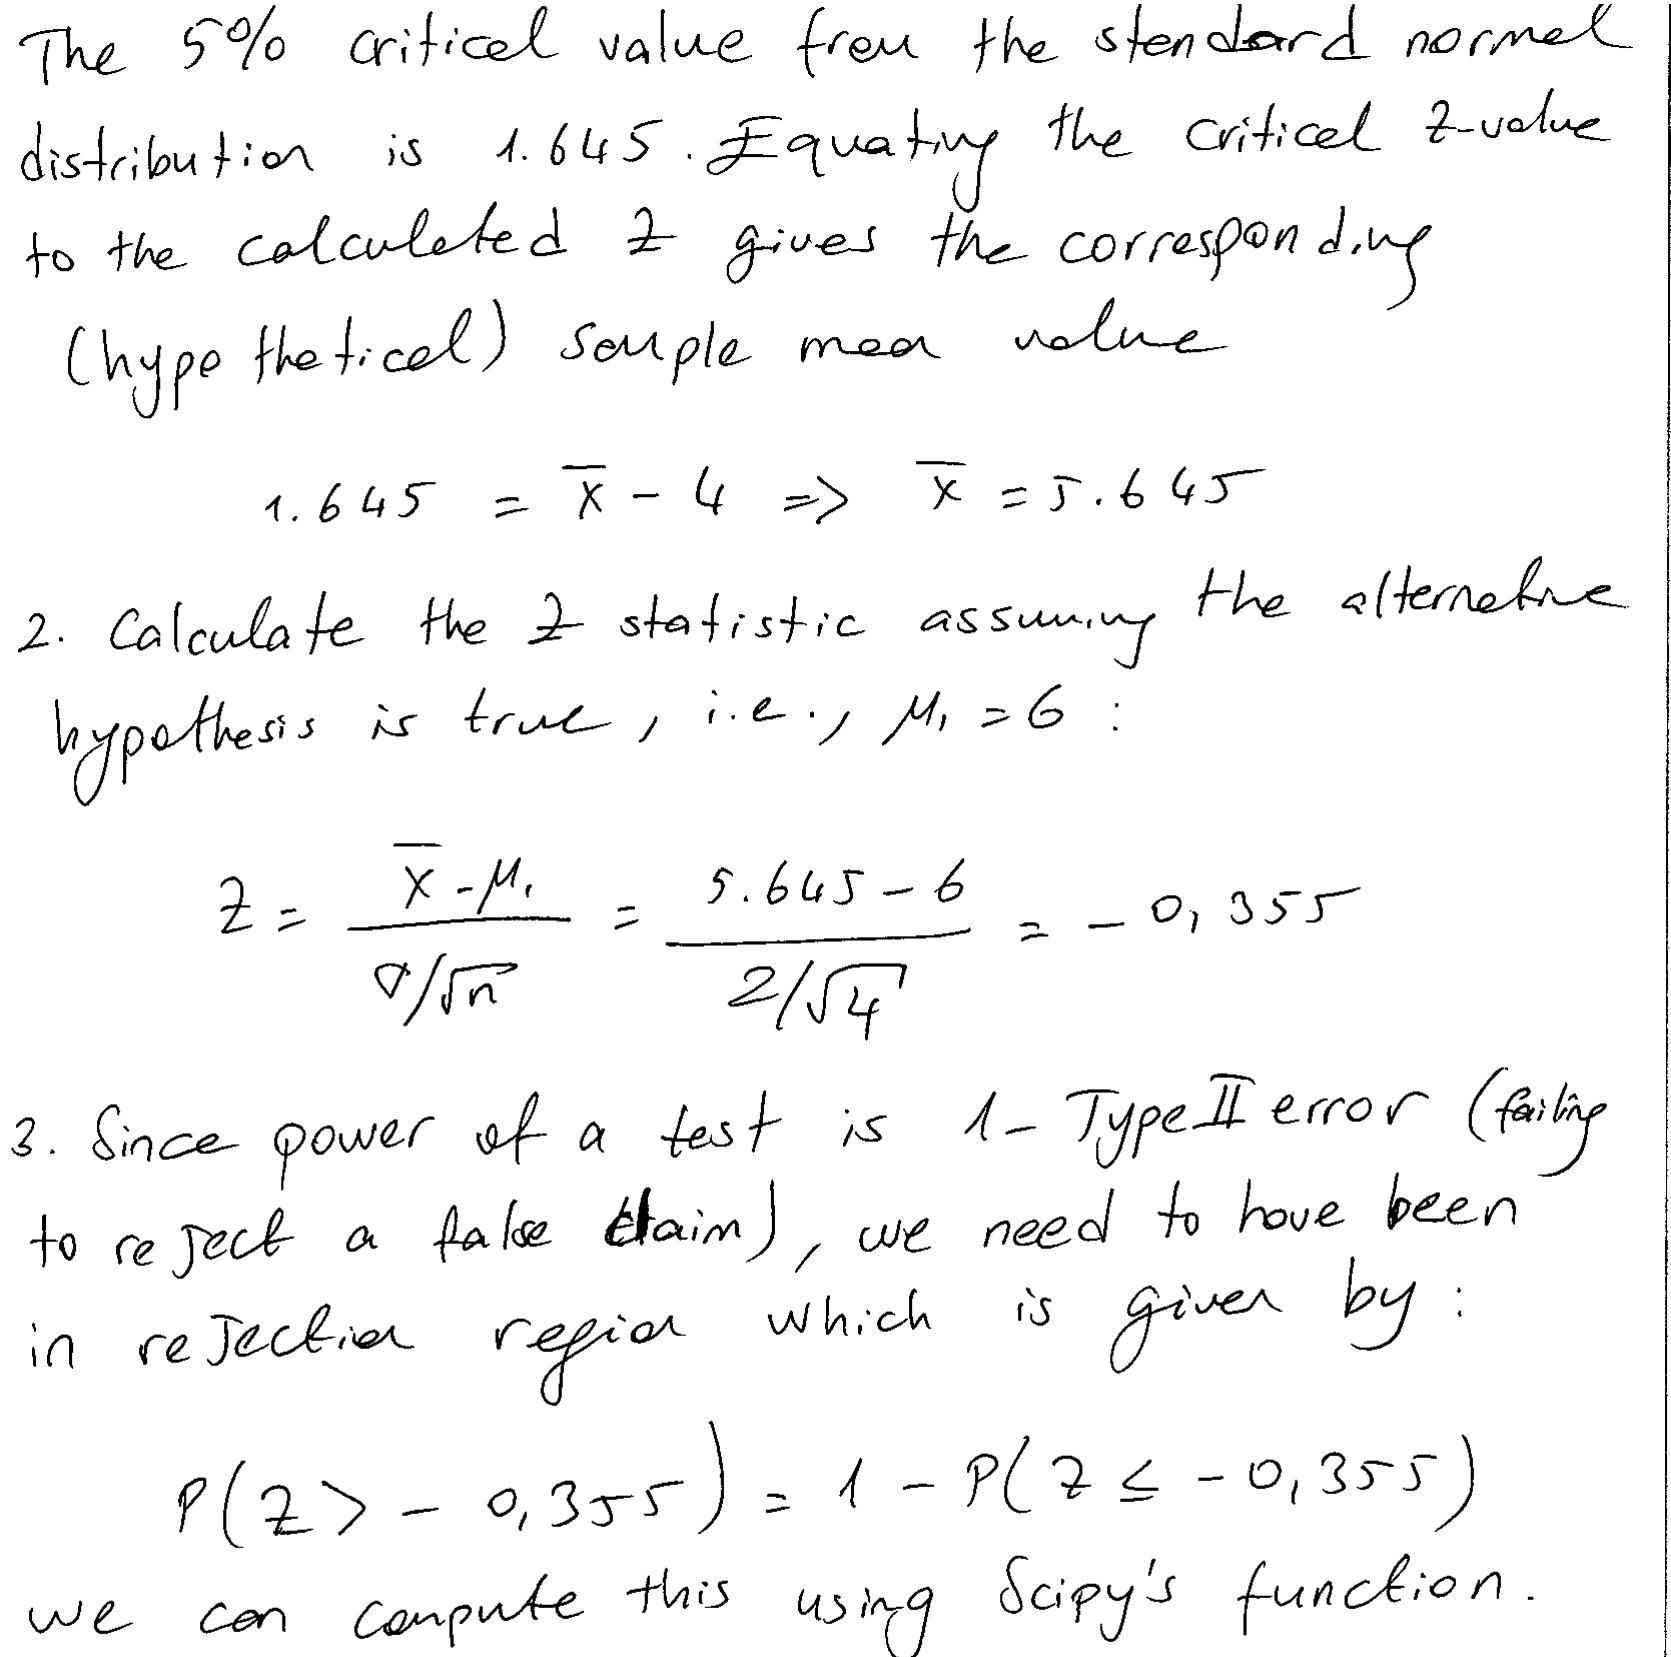 The 5% critical value from the standard normal
distribution is 1.645. Equating the critical z-value
to the calculated z gives the corresponding
(hypothetical) sample mean value
1.645 = x̄ - 4 => x̄ = 5.645
2. Calculate the z statistic assuming the alternative
hypothesis is true, i.e., μ₁ = 6 :
z = (x̄ - μ₁)/(σ/√n) = (5.645 - 6)/(2/√4) = - 0,355
3. Since power of a test is 1 - Type II error (failing
to reject a false claim), we need to have been
in rejection region which is given by :
P(z > - 0,355) = 1 - P(z ≤ - 0,355)
we can compute this using Scipy's function.